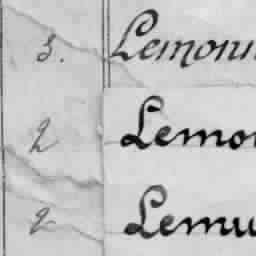 3. Lemonn
2 Lemon
2 Lemu